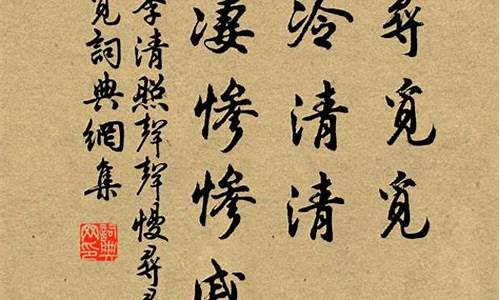 尋覓覓
冷清清
淒慘慘戚
李清照聲聲慢尋尋
覓詞典網集